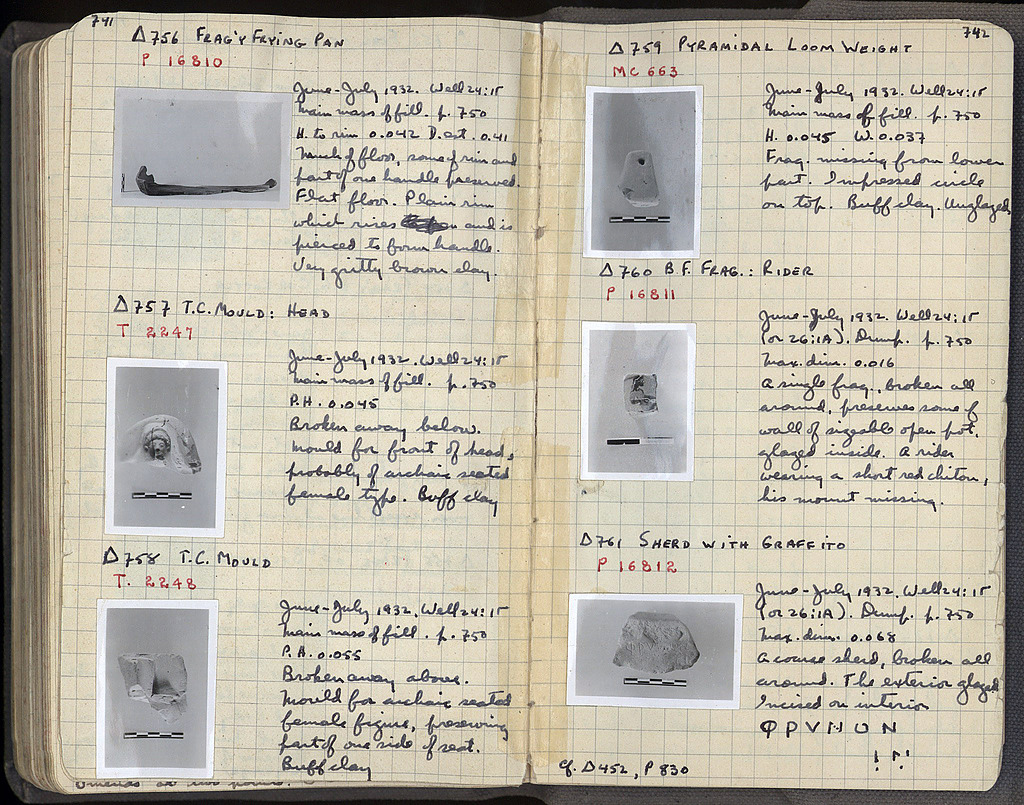 741
Δ756 FRAG'Y FRYING PAN
P 16810
June-July 1932. Well 24:15
Main mass of fill. p. 750
H. to rim 0.042 D. est. 0.41
Much of floor, some of rim and
part of one handle preserved.
Flat floor. Plain rim
which rises and is
pierced to form handle.
Very gritty brown clay.
Δ757 T.C. MOULD: HEAD
T 2247
June-July 1932. Well 24:15
Main mass of fill. p. 750
P.H. 0.045
Broken away below.
Mould for front of head,
probably of archaic seated
female type. Buff clay
Δ758 T.C. MOULD
T. 2248
June-July 1932. Well 24:15
Main mass of fill. p. 750
P.H. 0.055
Broken away above.
Mould for archaic seated
female figure, preserving
part of one side of seat.
Buff clay
742
Δ759 PYRAMIDAL LOOM WEIGHT
MC 663
June-July 1932. Well 24:15
Main mass of fill. p. 750
H. 0.045 W. 0.037
Frag. missing from lower
part. Impressed circle
on top. Buff clay. Unglazed
Δ760 B.F. FRAG.: RIDER
P 16811
June-July 1932. Well 24:15
(or 26:1A). Dump. p. 750
Max. dim. 0.016
A single frag., broken all
around, preserves some of
wall of sizeable open pot,
glazed inside. A rider
wearing a short red chiton,
his mount missing.
Δ761 SHERD WITH GRAFFITO
P 16812
June-July 1932. Well 24:15
(or 26:1A). Dump. p. 750
Max. dim. 0.068
A coarse sherd, broken all
around. The exterior glazed
Incised on interior
cf. Δ452, P 830